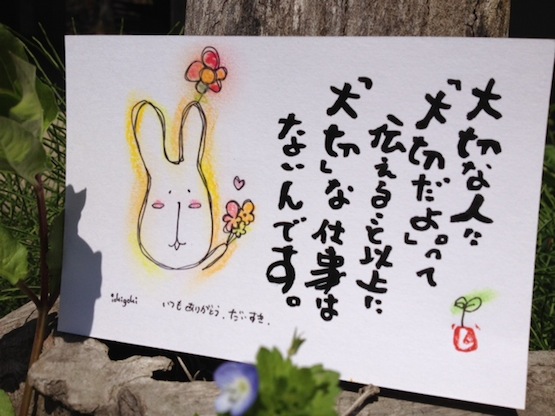 大切な人に
「大切だよ。」って
伝えること以上に
「大切」な仕事は
ないんです。
いつもありがとう、だいすき。